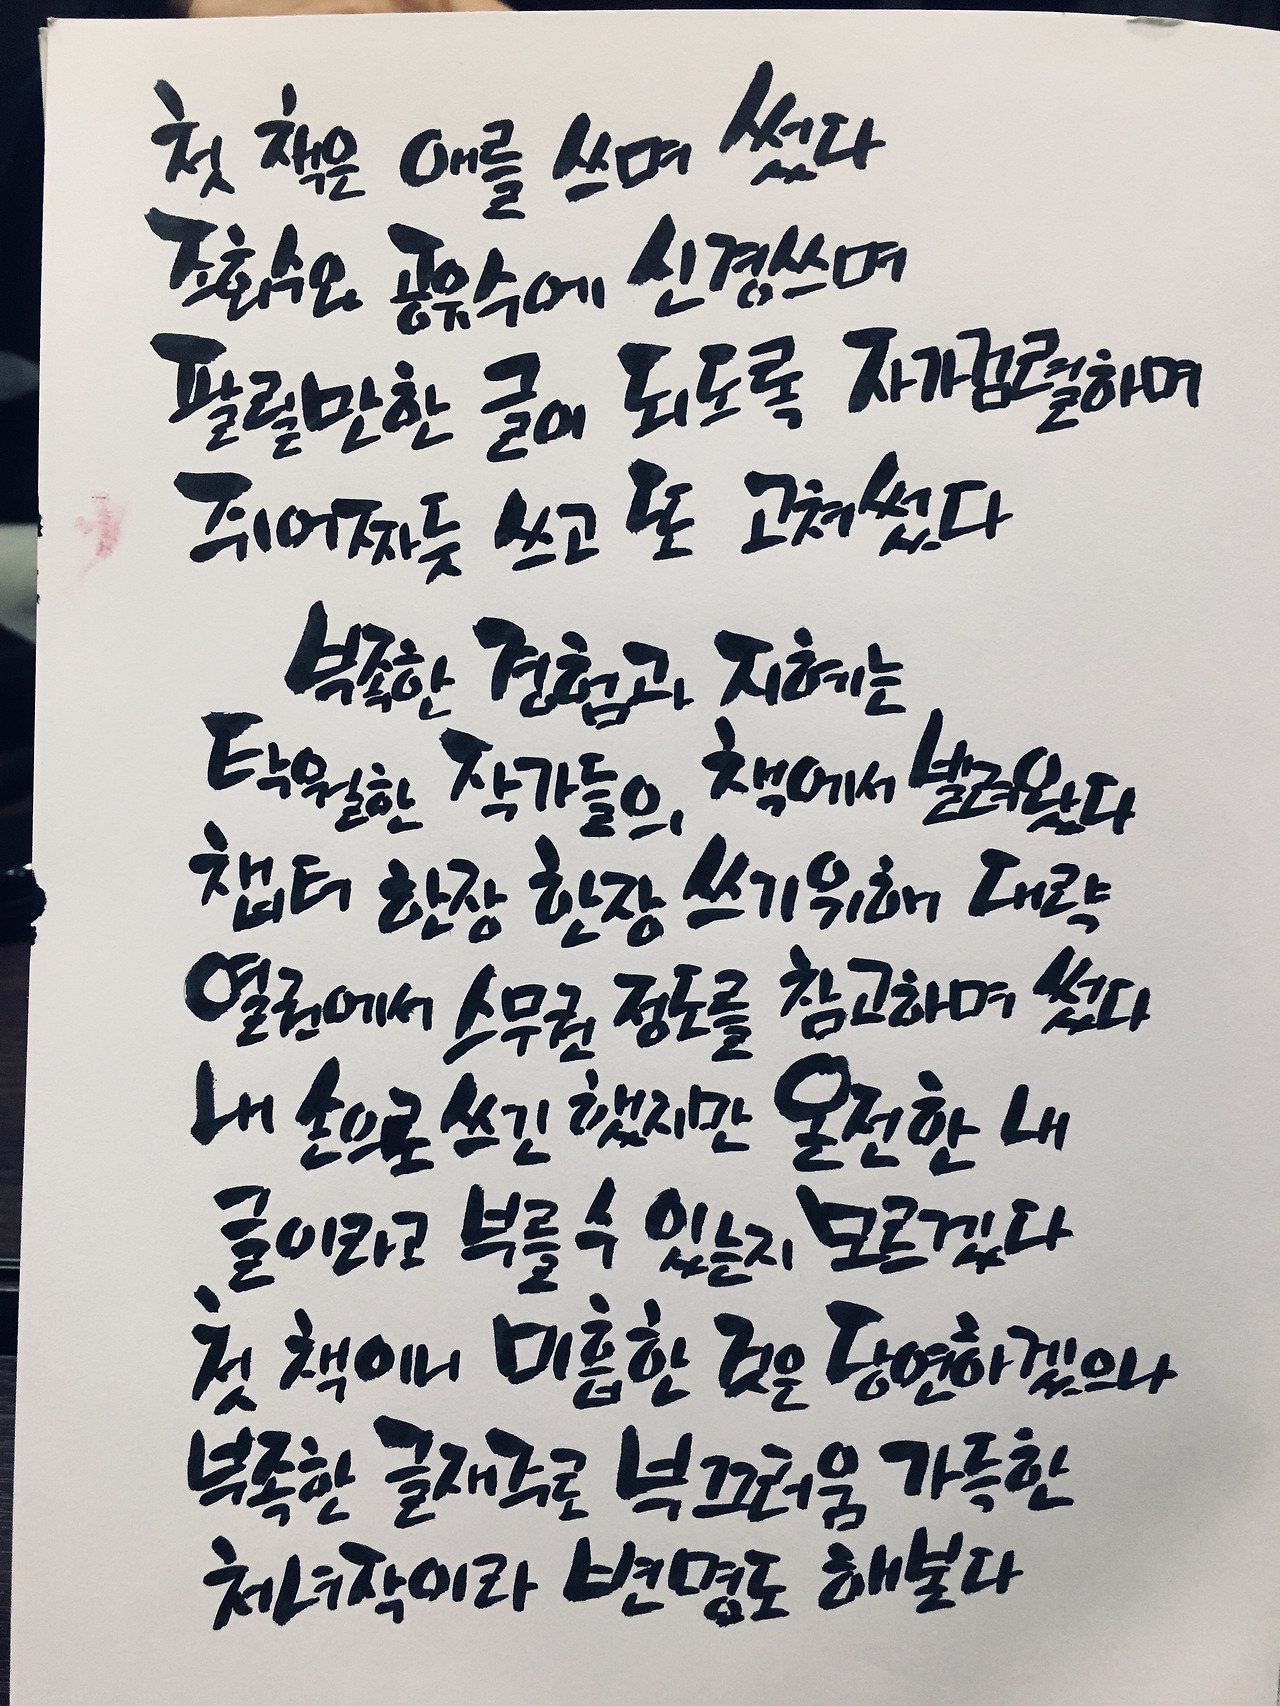 첫 책은 애를 쓰며 썼다
조회수와 공유수에 신경쓰며
팔릴만한 글이 되도록 자가검열하며
쥐어짜듯 쓰고 또 고쳐썼다
부족한 경험과 지혜는
탁월한 작가들의 책에서 빌려왔다
챕터 한장 한장 쓰기위해 대략
열권에서 스무권 정도를 참고하며 썼다
내 손으로 쓰긴 했지만 온전한 내
글이라고 부를 수 있는지 모르겠다
첫 책이니 미흡한 것은 당연하겠으나
부족한 글재주로 부끄러움 가득한
처녀작이라 변명도 해본다